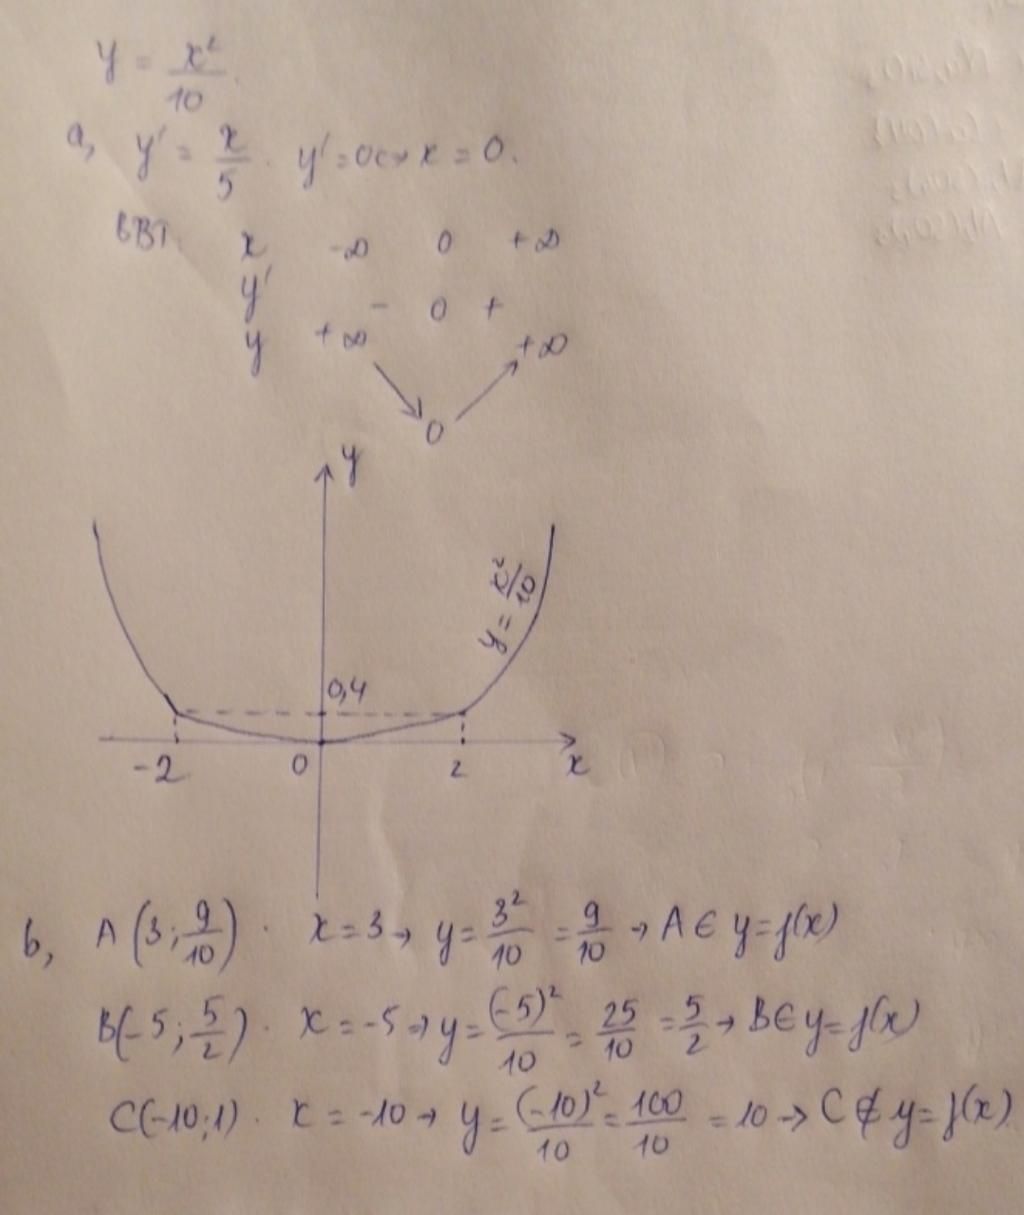 y = x²/10.
a, y' = x/5. y' = 0 <-> x = 0.
BBT. x -∞ 0 +∞
y' - 0 +
y +∞ 0 +∞
y
y = x²/10
0,4
-2 0 2 x
b, A(3; 9/10). x = 3 → y = 3²/10 = 9/10 → A ∈ y = f(x)
B(-5; 5/2). x = -5 → y = (-5)²/10 = 25/10 = 5/2 → B ∈ y = f(x)
C(-10; 1). x = -10 → y = (-10)²/10 = 100/10 = 10 → C ∉ y = f(x)